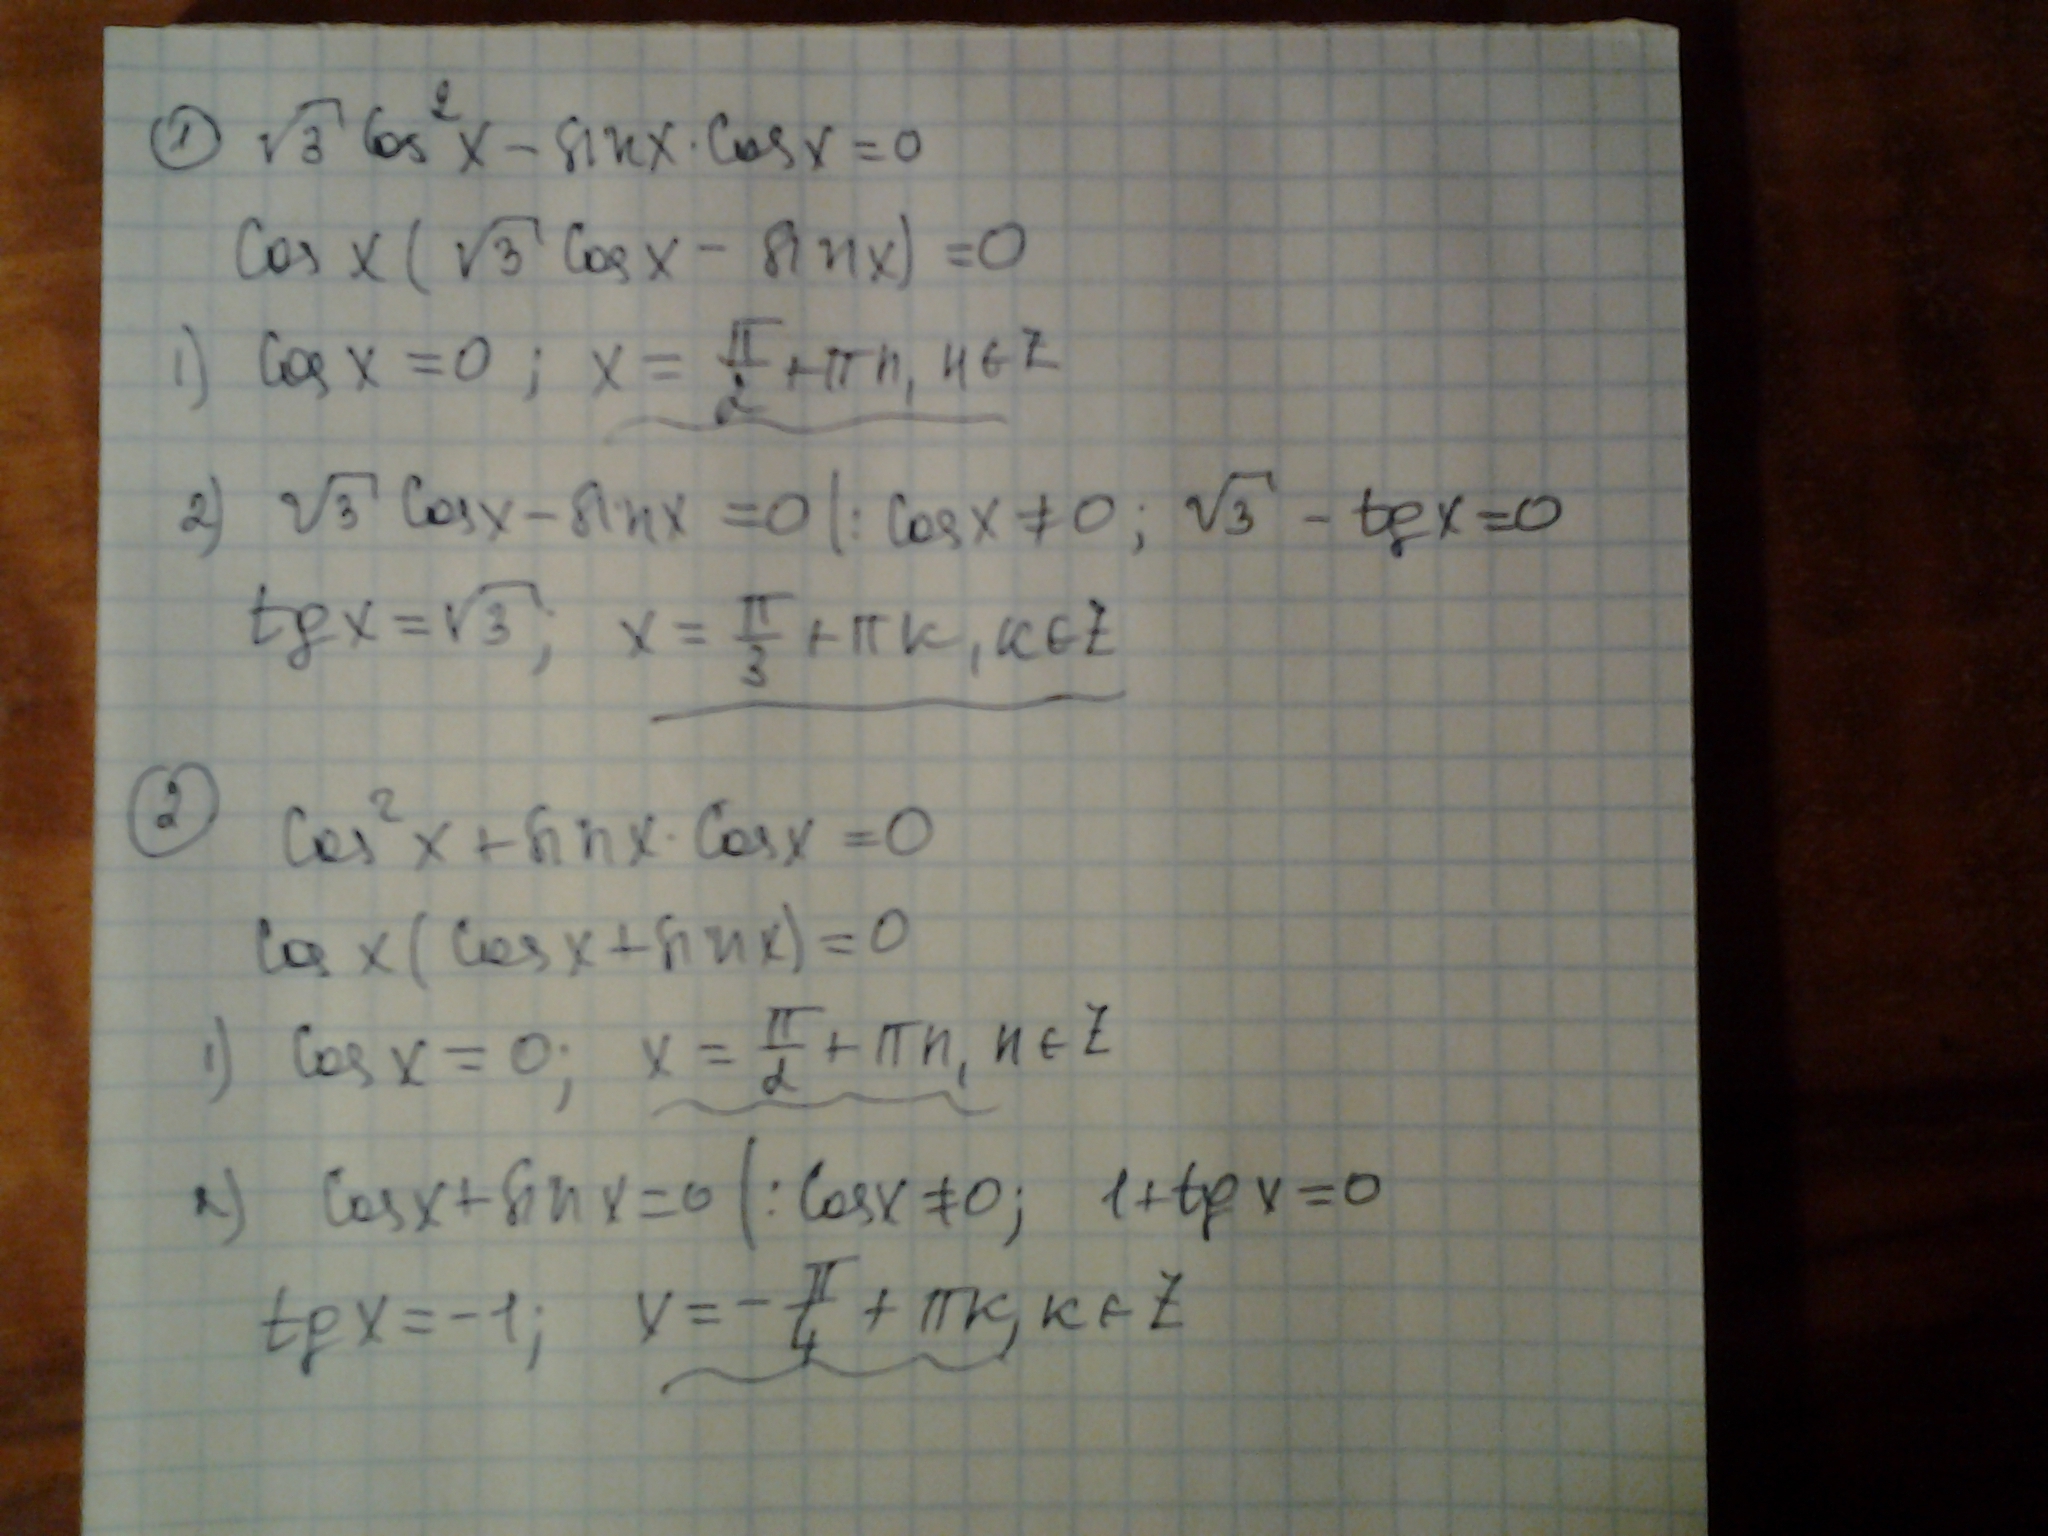 ① √3 cos²x - sinx · cosx = 0
cos x (√3 cosx - sinx) = 0
1) cosx = 0; x = π/2 + πn, n∈Z
2) √3 cosx - sinx = 0 |: cosx ≠ 0; √3 - tgx = 0
tgx = √3; x = π/3 + πk, k∈Z
② cos²x + sinx · cosx = 0
cosx (cosx + sinx) = 0
1) cosx = 0; x = π/2 + πn, n∈Z
2) cosx + sinx = 0 |: cosx ≠ 0; 1 + tgx = 0
tgx = -1; x = -π/4 + πk, k∈Z